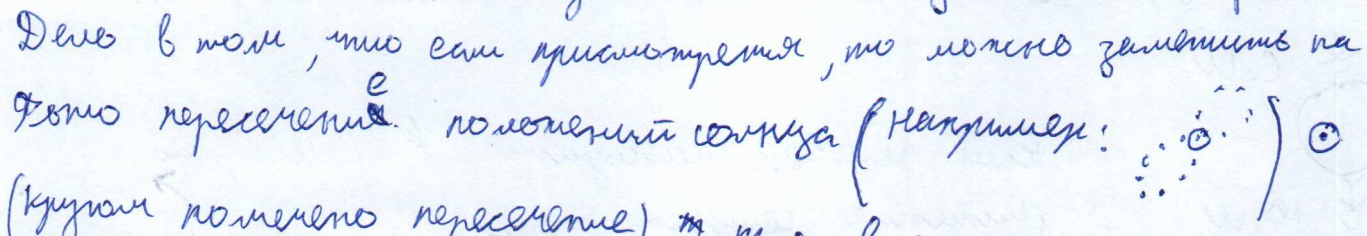 Дело в том, что если присмотреться, то можно заметить на
фото пересечение положений солнца (например: )
(кругом помечено пересечение)